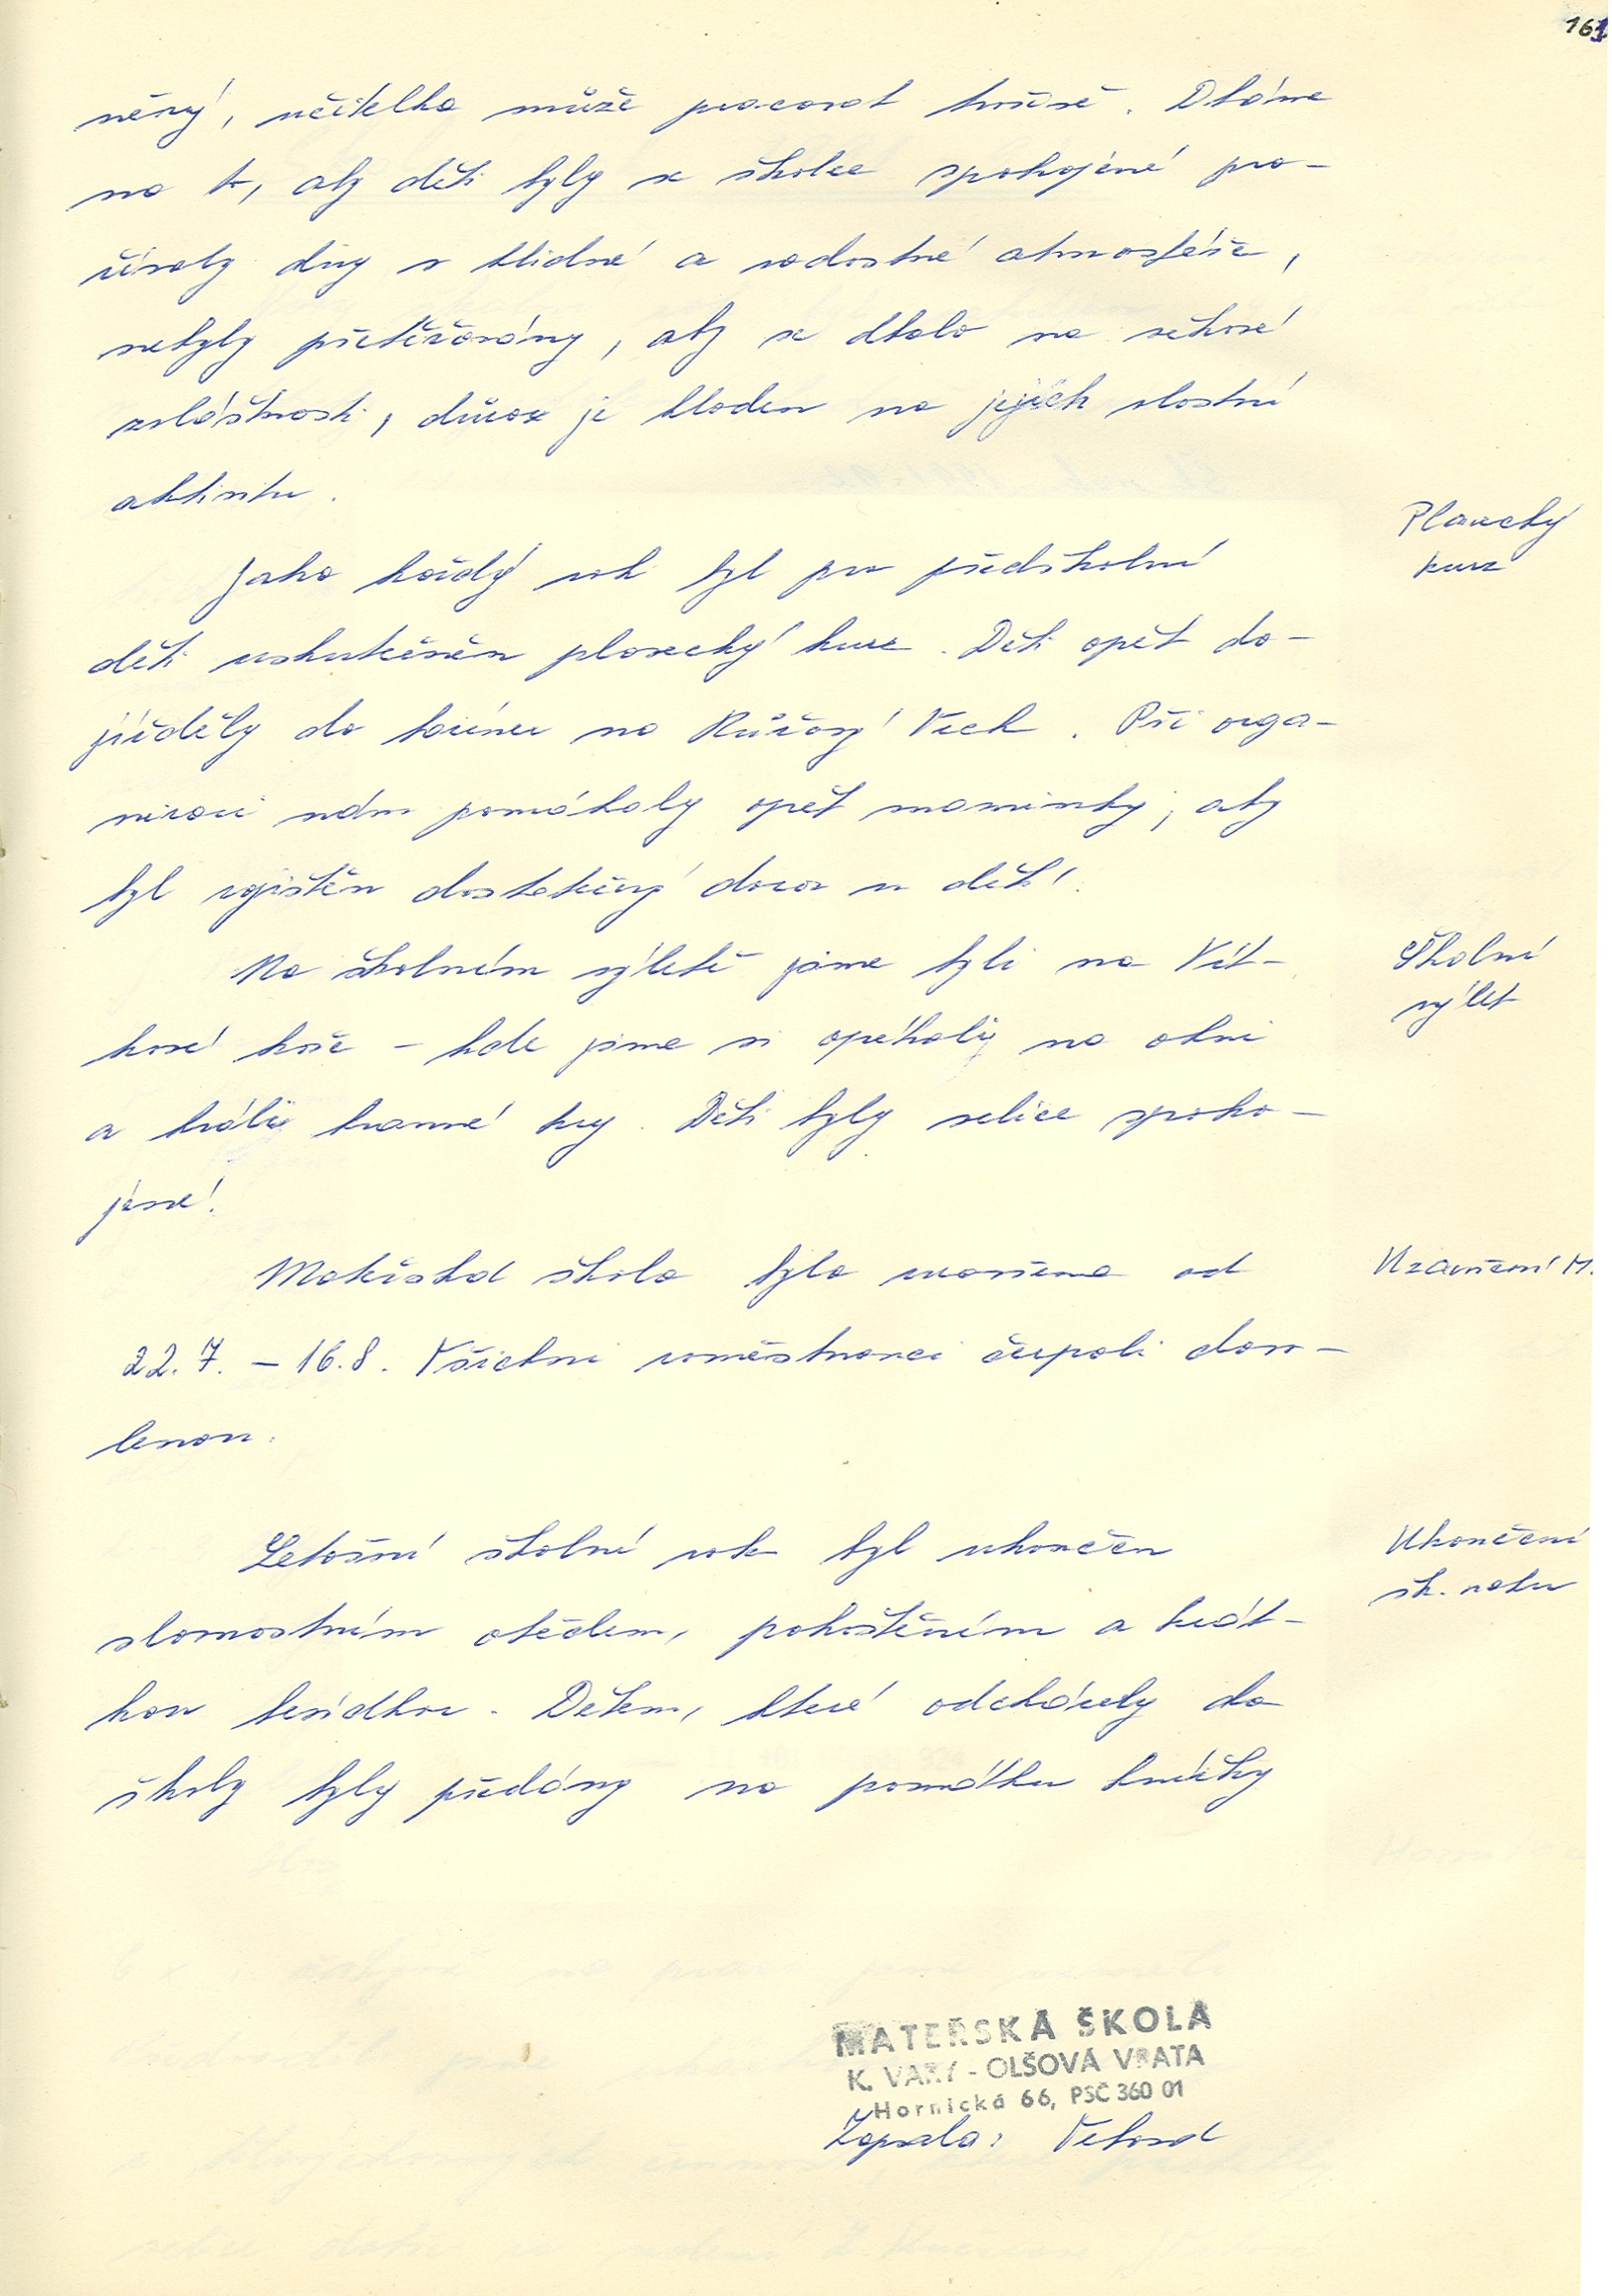 161
něný, učitelka může pracovat tvořivě. Dbáme
na to, aby děti byly ve školce spokojené pro-
žívaly dny v klidné a radostné atmosféře,
nebyly přetěžovány, aby se dbalo na věkové
zvláštnosti, důraz je kladen na jejich vlastní
aktivitu.
Plavecký
kurz
Jako každý rok byl pro předškolní
děti uskutečněn plavecký kurz. Děti opět do-
jížděly do bazénu na Růžový Vrch. Při orga-
nizaci nám pomáhaly opět maminky, aby
byl zajištěn dostatečný dozor u dětí.
Školní
výlet
Na školním výletě jsme byli na Vít-
kově hoře – kde jsme si opékaly na ohni
a hráli hravné hry. Děti byly velice spoko-
jené!
Uzavření M.
Mateřská škola byla uzavřena od
22.7. – 16.8. Všichni zaměstnanci čerpali dovo-
lenou.
Ukončení
šk. roku
Letošní školní rok byl ukončen
slavnostním obědem, pohoštěním a krát-
kou besídkou. Dětem, které odcházely do
školy byly předány na památku knížky
MATEŘSKÁ ŠKOLA
K. VARY - OLŠOVÁ VRATA
Hornická 66, PSČ 360 01
Zapsala: